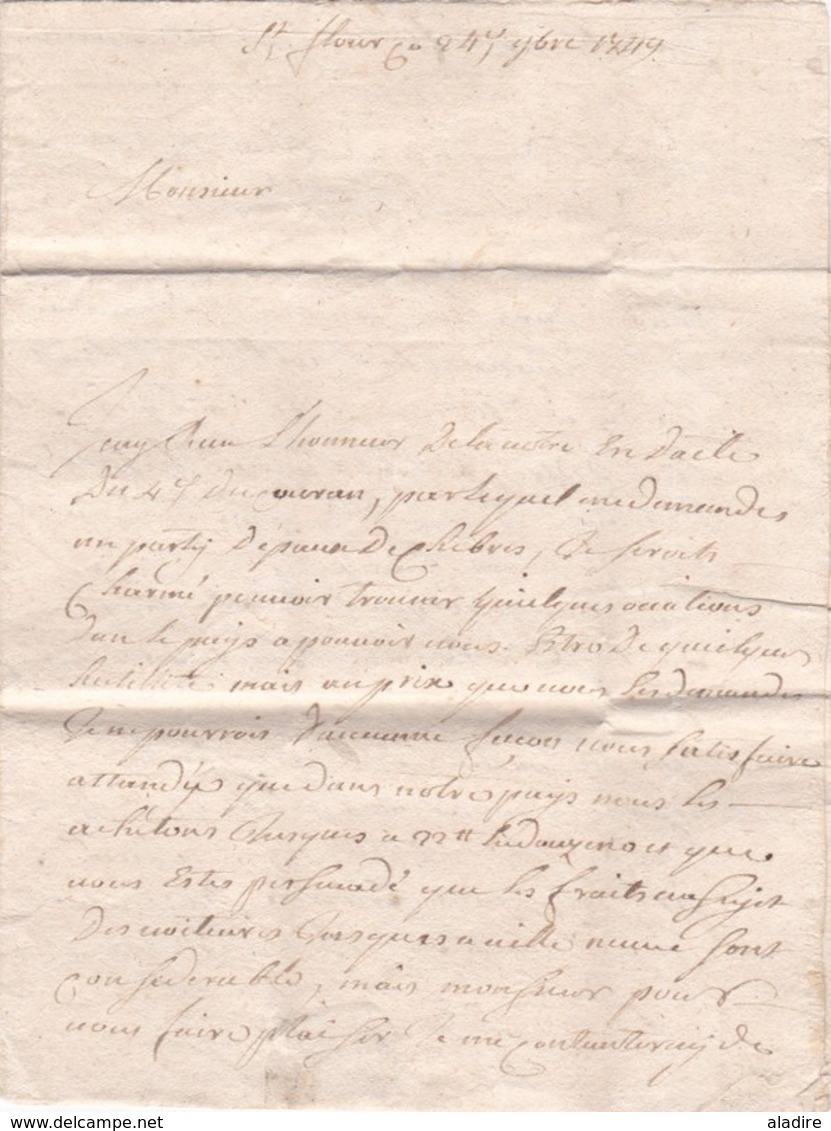 St flour ce 24e 9bre 1749
Monsieur
Jay Reçeu L'honneur Delavotre En Datte
Du 4e Ducouran, par Lequel medemandes
un party D'épaux De Chebres, Je serois
Charmé pouvoir trouver quelques ocations
dan le pays a pouvoir vous Estre De quelque
hutillité, mais au prix que vous Les demandes
Je ne pourrois Daucunne facon vous satisfaire
attandú que dans notre pays nous les
achetons Jusques a 22tt La douzene et que
vous Estes persuadé que les fraits au sujet
Des voitures Jusques a ville neuve sont
Considerable, mais monsieur pour
vous faire plaisir Je me Contanteray de
aladire